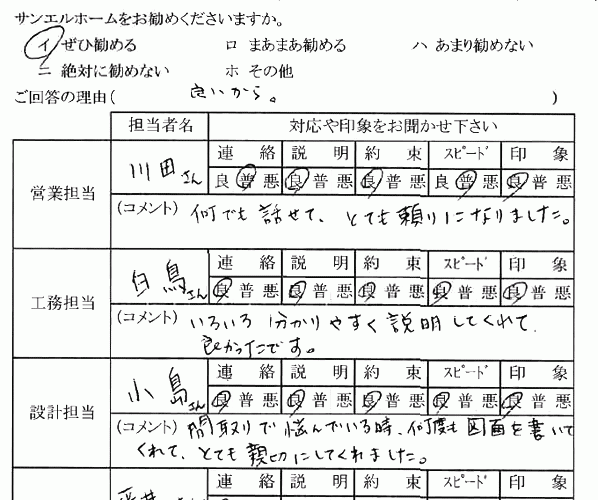 サンエルホームをお勧めくださいますか。
イ ぜひ勧める ロ まあまあ勧める ハ あまり勧めない
ニ 絶対に勧めない ホ その他
ご回答の理由( 良いから。 )
担当者名 対応や印象をお聞かせ下さい
営業担当 川田さん 連絡 説明 約束 スピード 印象
良 普 悪 良 普 悪 良 普 悪 良 普 悪 良 普 悪
(コメント) 何でも話せて、とても頼りになりました。
工務担当 白鳥さん 連絡 説明 約束 スピード 印象
良 普 悪 良 普 悪 良 普 悪 良 普 悪 良 普 悪
(コメント) いろいろ分かりやすく説明してくれて、
良かったです。
設計担当 小島さん 連絡 説明 約束 スピード 印象
良 普 悪 良 普 悪 良 普 悪 良 普 悪 良 普 悪
(コメント) 間取りで悩んでいる時、何度も図面を書いて
くれて、とても親切にしてくれました。
連絡 説明 約束 スピード 印象